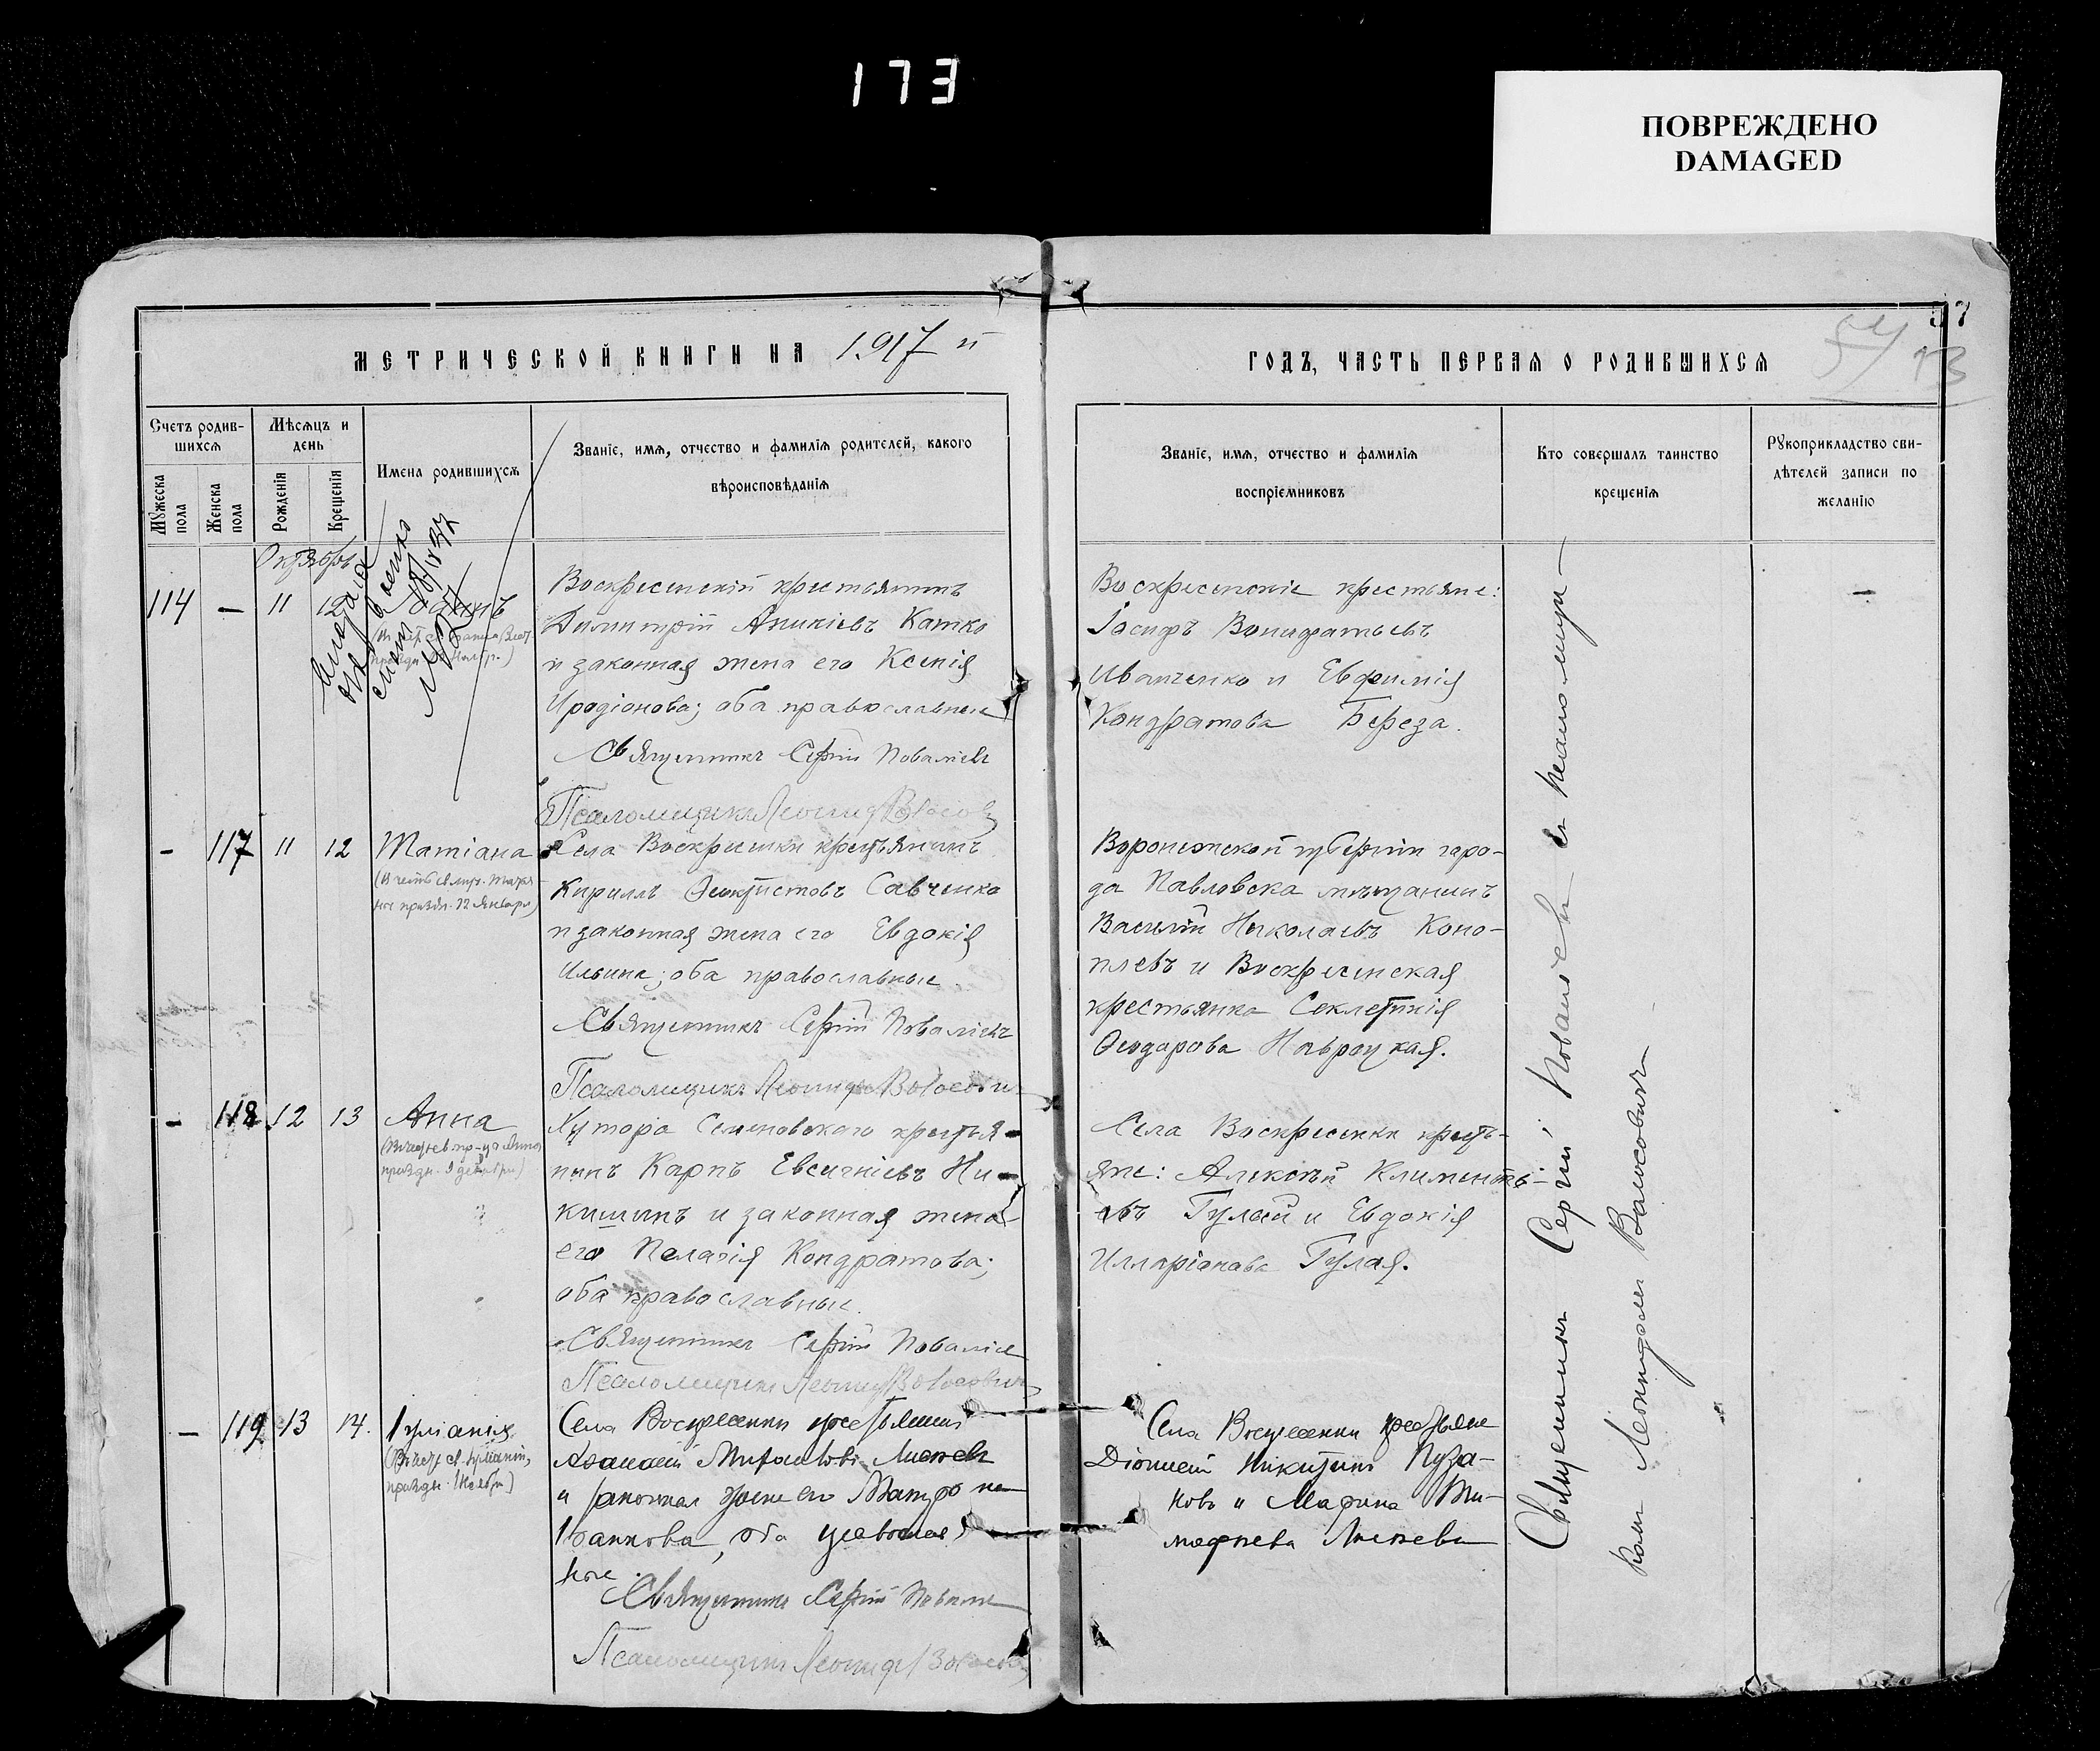 173
ПОВРЕЖДЕНО
DAMAGED
МЕТРИЧЕСКОЙ КНИГИ НА 1917 й
ГОДЪ, ЧАСТЬ ПЕРВАЯ О РОДИВШИХСЯ
57
13
Счетъ родив-
шихся
Мужеска
пола
Женска
пола
Мѣсяцъ и
день
Рожденія
Крещенія
Имена родившихся
Званіе, имя, отчество и фамилія родителей, какого
вѣроисповѣданія
Званіе, имя, отчество и фамилія
воспріемниковъ
Кто совершалъ таинство
крещенія
Рукоприкладство сви-
дѣтелей записи по
желанію
Октябрь
114 – 11 12 Іоаннъ
Воскресенскій крестьянинъ
Димитрій Аникіевъ Катко
и законная жена его Ксенія
Иродіонова; оба православные
Священникъ Сергій Поваліевъ
Псаломщикъ Леонидъ Волосов
Воскресенскіе крестьяне:
Іосифъ Вонифатьевъ
Иванченко и Евфимія
Кондратова Береза.
–
– 117 11 12 Татіана
празд. 12 Января)
Села Воскресенки крестьянинъ
Кириллъ Феоктистовъ Савченко
и законная жена его Евдокія
Ильина; оба православные
Священникъ Сергій Поваліевъ
Псаломщикъ Леонидъ Волосови
Воронежской губерніи горо-
да Павловска мѣщанинъ
Василій Николаевъ Коно-
плевъ и Воскресенская
крестьянка Секлетикія
Феодорова Навроцкая.
– 118 12 13 Анна
празд. 9 декабря)
Хутора Семеновского крестья-
нинъ Карпъ Евсигніевъ Ни-
кишинъ и законная жена
его Пелагія Кондратова;
оба православные.
Священникъ Сергій Поваліе
Псаломщикъ Леонидъ Волосовичъ
Села Воскресенки кресть-
яне: Алексѣй Клименть-
евъ Гулый и Евдокія
Илларіонова Гулая.
– 119 13 14. Іуліанія
(Въ честь св. Іуліаніи,
празд. 1 Ноября)
Села Воскресенки крестьянинъ
Аѳанасій
и законная жена его Матрона
Іоаннова, оба православ
ные.
Священникъ Сергій Повали
Псаломщикъ Леонидъ Волосов
Села Воскресенки крестьяне
Діонисій Никитинъ Пуза-
новъ и Марина Ти-
мофеева
Священникъ Сергій Поваліевъ съ псаломщи-
комъ Леонидомъ Волосовичъ